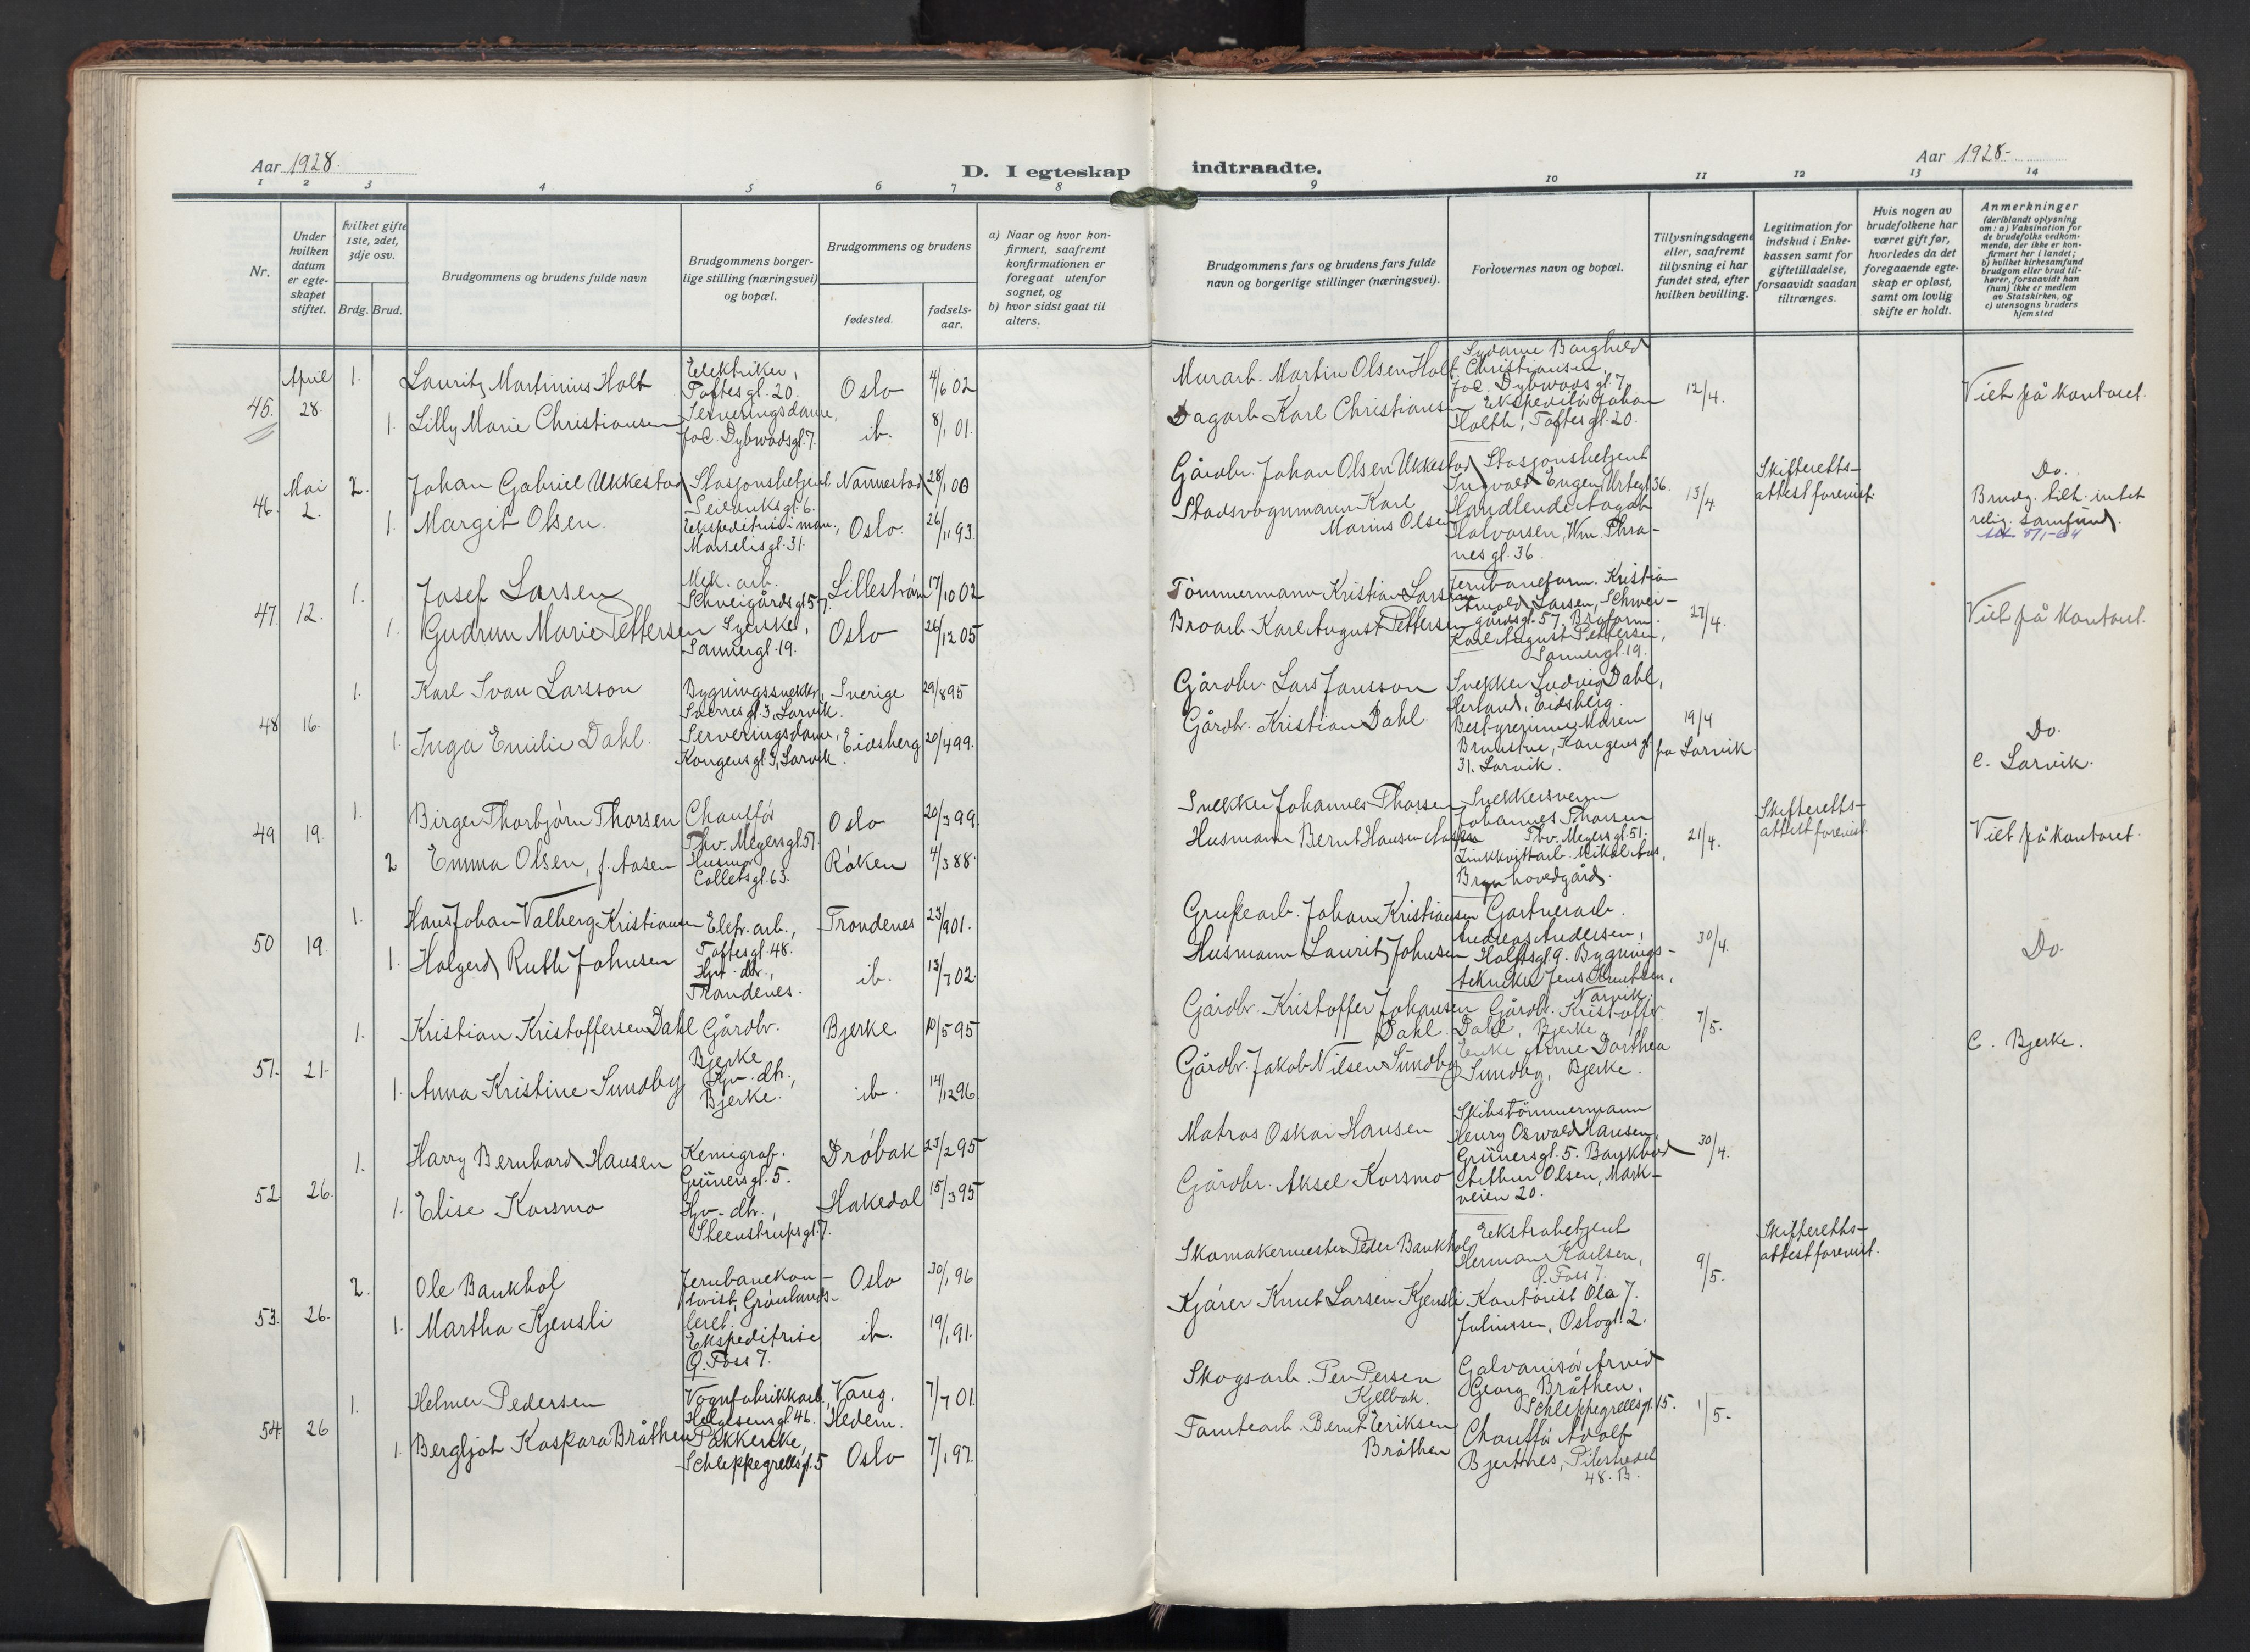 Aar 1928.
D. I egteskap indtraadte.
Aar 1928-
1 2 3 4 5 6 7 8 9 10 11 12 13 14
Nr.
Under hvilken datum er egteskapet stiftet.
hvilket gifte 1ste, 2det, 3dje osv.
Brdg. Brud.
Brudgommens og brudens fulde navn
Brudgommens borgerlige stilling (næringsvei) og bopæl.
Brudgommens og brudens
fødested.
fødselsaar.
a) Naar og hvor konfirmert, saafremt konfirmationen er foregaat utenfor sognet, og
b) hvor sidst gaat til alters.
Brudgommens fars og brudens fars fulde navn og borgerlige stillinger (næringsvei).
Forlovernes navn og bopæl.
Tillysningsdagene eller, saafremt tillysning ei har fundet sted, efter hvilken bevilling.
Legitimation for indskud i Enkekassen samt for giftetilladelse, forsaavidt saadan tiltrænges.
Hvis nogen av brudefolkene har været gift før, hvorledes da det foregaaende egteskap er opløst, samt om lovlig skifte er holdt.
Anmerkninger
(deriblandt oplysning om: a) Vaksination for de brudefolks vedkommende, der ikke er konfirmert her i landet; b) hvilket kirkesamfund brudgom eller brud tilhører, forsaavidt han (hun) ikke er medlem av Statskirken, og c) utensogns bruders hjemsted
45. April 28. 1. Lauritz Martinius Holt Elektriker, Toftesgt. 20. Oslo 4/6 02
Murarb. Martin Olsen Holt. Sydame Borghild Christiansen, Jac. Dybwadsgt. 7 12/4. Viet på kontoret.
1. Lilly Marie Christiansen Serveringsdame, Jac. Dybwadsgt. 7. ib. 8/1 01.
Dagarb. Karl Christiansen Ekspeditør Johan Holth, Toftesgt. 20.
46. Mai 2. 2. Johan Gabriel Ukkestad Stasjonsbetjent Seilduksgt. 6. Nannestad 28/1 00
Gårdbr. Johan Olsen Ukkestad Stasjonsbetjent Ingvald Engen, Urtegt. 36. 13/4. Skifterettsattest forevist. Do.
1. Margit Olsen. Ekspeditrise i man., Marselisgt. 31. Oslo. 26/11 93.
Stadsvognmann Karl Marius Olsen Handlende Aagot Halvorsen, Wm. Thranesgt. 36.
Brudg. tilh. intet relig. samfund.
47. 12. 1. Josef Larsen Mek. arb. Schweigårdsgt. 57. Lillestrøm 17/10 02
Tømmermann Kristian Larsen Jernbaneform. Kristian Arnold Larsen, Schweigårdsgt. 57. 27/4. Viet på kontoret.
1. Gudrun Marie Pettersen Syerske, Sannergt. 19. Oslo 26/12 05
Broarb. Karl August Pettersen Broform. Karl August Pettersen, Sannergt. 19.
48 16. 1. Karl Ivan Larsson Bygningssnekker, Sverresgt. 3, Larvik. Sverige 29/8 95
Gårdbr. Lars Jansson Snekker Ludvig Dahl, Herland, Eidsberg. 19/4 fra Larvik Do.
1. Inga Emilie Dahl. Serveringsdame, Kongensgt. 3, Larvik. Eidsberg 20/4 99.
Gårdbr. Kristian Dahl. Bestyrerinne Maren Brunstue, Kongensgt. 31. Larvik. c. Larvik.
49 19. 1. Birger Thorbjørn Thorsen Chauffør Thv. Meyersgt. 51. Oslo 20/3 99.
Snekker Johannes Thorsen Snekkersvenn Johannes Thorsen Thv. Meyersgt. 51. 21/4. Skifterettsattest forevist. Viet på kontoret.
2 Emma Olsen, f. Aasen Husmor Colletsgt. 63. Røken 4/3 88.
Husmann Bernt Hansen Aasen Zinkkvittarb. Mikal Aas, Bryn hovedgård.
50 19. 1. Hans Johan Valberg Kristiansen Eletr. arb., Toftesgt. 48. Trondenes 23/9 01.
Grubearb. Johan Kristiansen Gartnerarb. Andreas Andersen, Holstsgt. 9. 30/4. Do.
1. Holgerd Ruth Johnsen Hjv. dtr., Trondenes. ib. 13/7 02.
Husmann Laurits Johnsen Bygningstekniker Jens Knutsen, Narvik.
51. 21. 1. Kristian Kristoffersen Dahl Gårdbr. Bjerke Bjerke 10/5 95
Gårdbr. Kristoffer Johansen Dahl. Gårdbr. Kristoffer Dahl, Bjerke. 7/5. C. Bjerke.
1. Anna Kristine Sundby Hjv. dtr., Bjerke. ib. 14/12 96
Gårdbr. Jakob Nilsen Sundby Enke Anne Dorthea Sundby, Bjerke.
52 26. 1. Harry Bernhard Hansen Kemigraf. Grünersgt. 5. Drøbak 23/2 95
Matros Oskar Hansen Skibstømmermann Henry Oswald Hansen, Grünersgt. 5. 30/4.
1. Elise Korsmo Hjv. dtr., Steenstrupsgt. 7. Hakedal 15/3 95
Gårdbr. Aksel Korsmo Bankbud Arthur Olsen, Markveien 20.
53. 26. 2. Ole Bankhol Jernbanekontorist, Grønlandsleret. Oslo 30/1 96
Skomakermester Peder Bankhol Ekstrabetjent Herman Karlsen, Q. Foss 7. 9/5. Skifterettsattest forevist.
1. Martha Kjensli Ekspeditrise Q. Foss 7. ib. 19/1 91.
Kjører Knut Larsen Kjensli Kontorist Ola J. Juliussen, Oslogt. 2.
54 26 1. Helmer Pedersen Vognfabrikkarb. Helgesensgt. 46. Vang, Hedem. 7/7 01.
Skogsarb. Per Persen Kjelbak. Galvanisør Arvid Georg Bråthen, Schleppegrellsgt. 15. 1/5.
1. Bergljot Kaspara Bråthen Pakkerske, Schleppegrellsgt. 5 Oslo 7/1 97.
Tomtearb. Bernt Eriksen Bråthen Chauffør Adolf Bjertnes, Pilestredet 48. B.